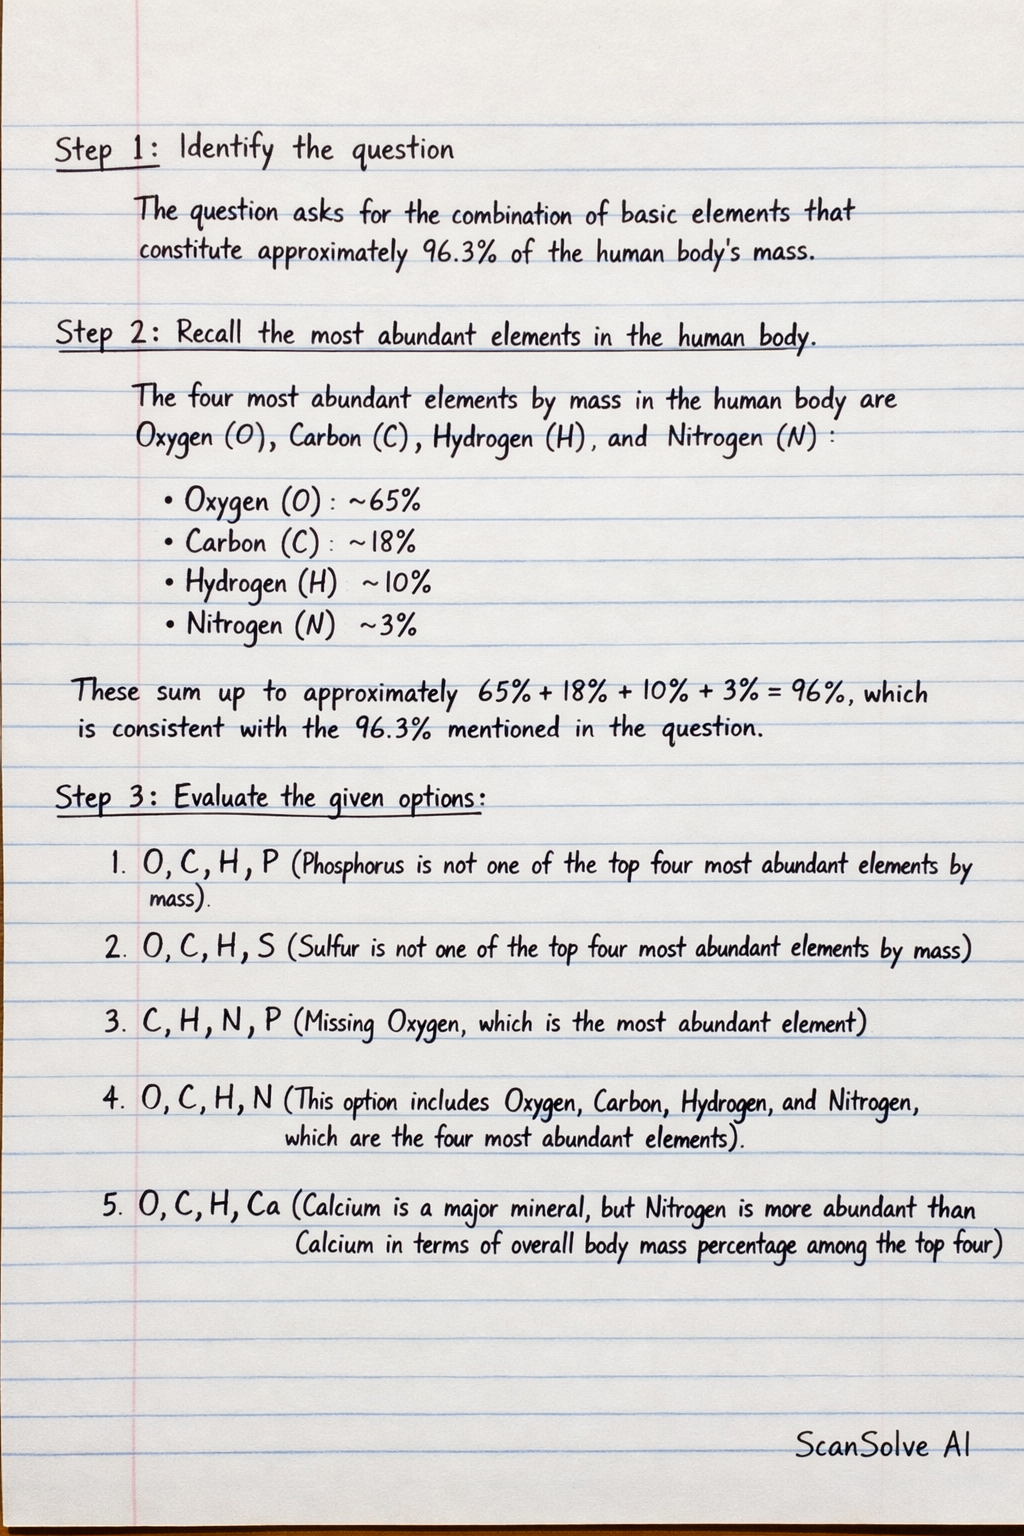 Step 1: Identify the question
The question asks for the combination of basic elements that
constitute approximately 96.3% of the human body's mass.
Step 2: Recall the most abundant elements in the human body.
The four most abundant elements by mass in the human body are
Oxygen (O), Carbon (C), Hydrogen (H), and Nitrogen (N) :
• Oxygen (O) : ~65%
• Carbon (C) : ~18%
• Hydrogen (H) ~10%
• Nitrogen (N) ~3%
These sum up to approximately 65% + 18% + 10% + 3% = 96%, which
is consistent with the 96.3% mentioned in the question.
Step 3: Evaluate the given options:
1. O, C, H, P (Phosphorus is not one of the top four most abundant elements by
mass).
2. O, C, H, S (Sulfur is not one of the top four most abundant elements by mass)
3. C, H, N, P (Missing Oxygen, which is the most abundant element)
4. O, C, H, N (This option includes Oxygen, Carbon, Hydrogen, and Nitrogen,
which are the four most abundant elements).
5. O, C, H, Ca (Calcium is a major mineral, but Nitrogen is more abundant than
Calcium in terms of overall body mass percentage among the top four)
ScanSolve AI